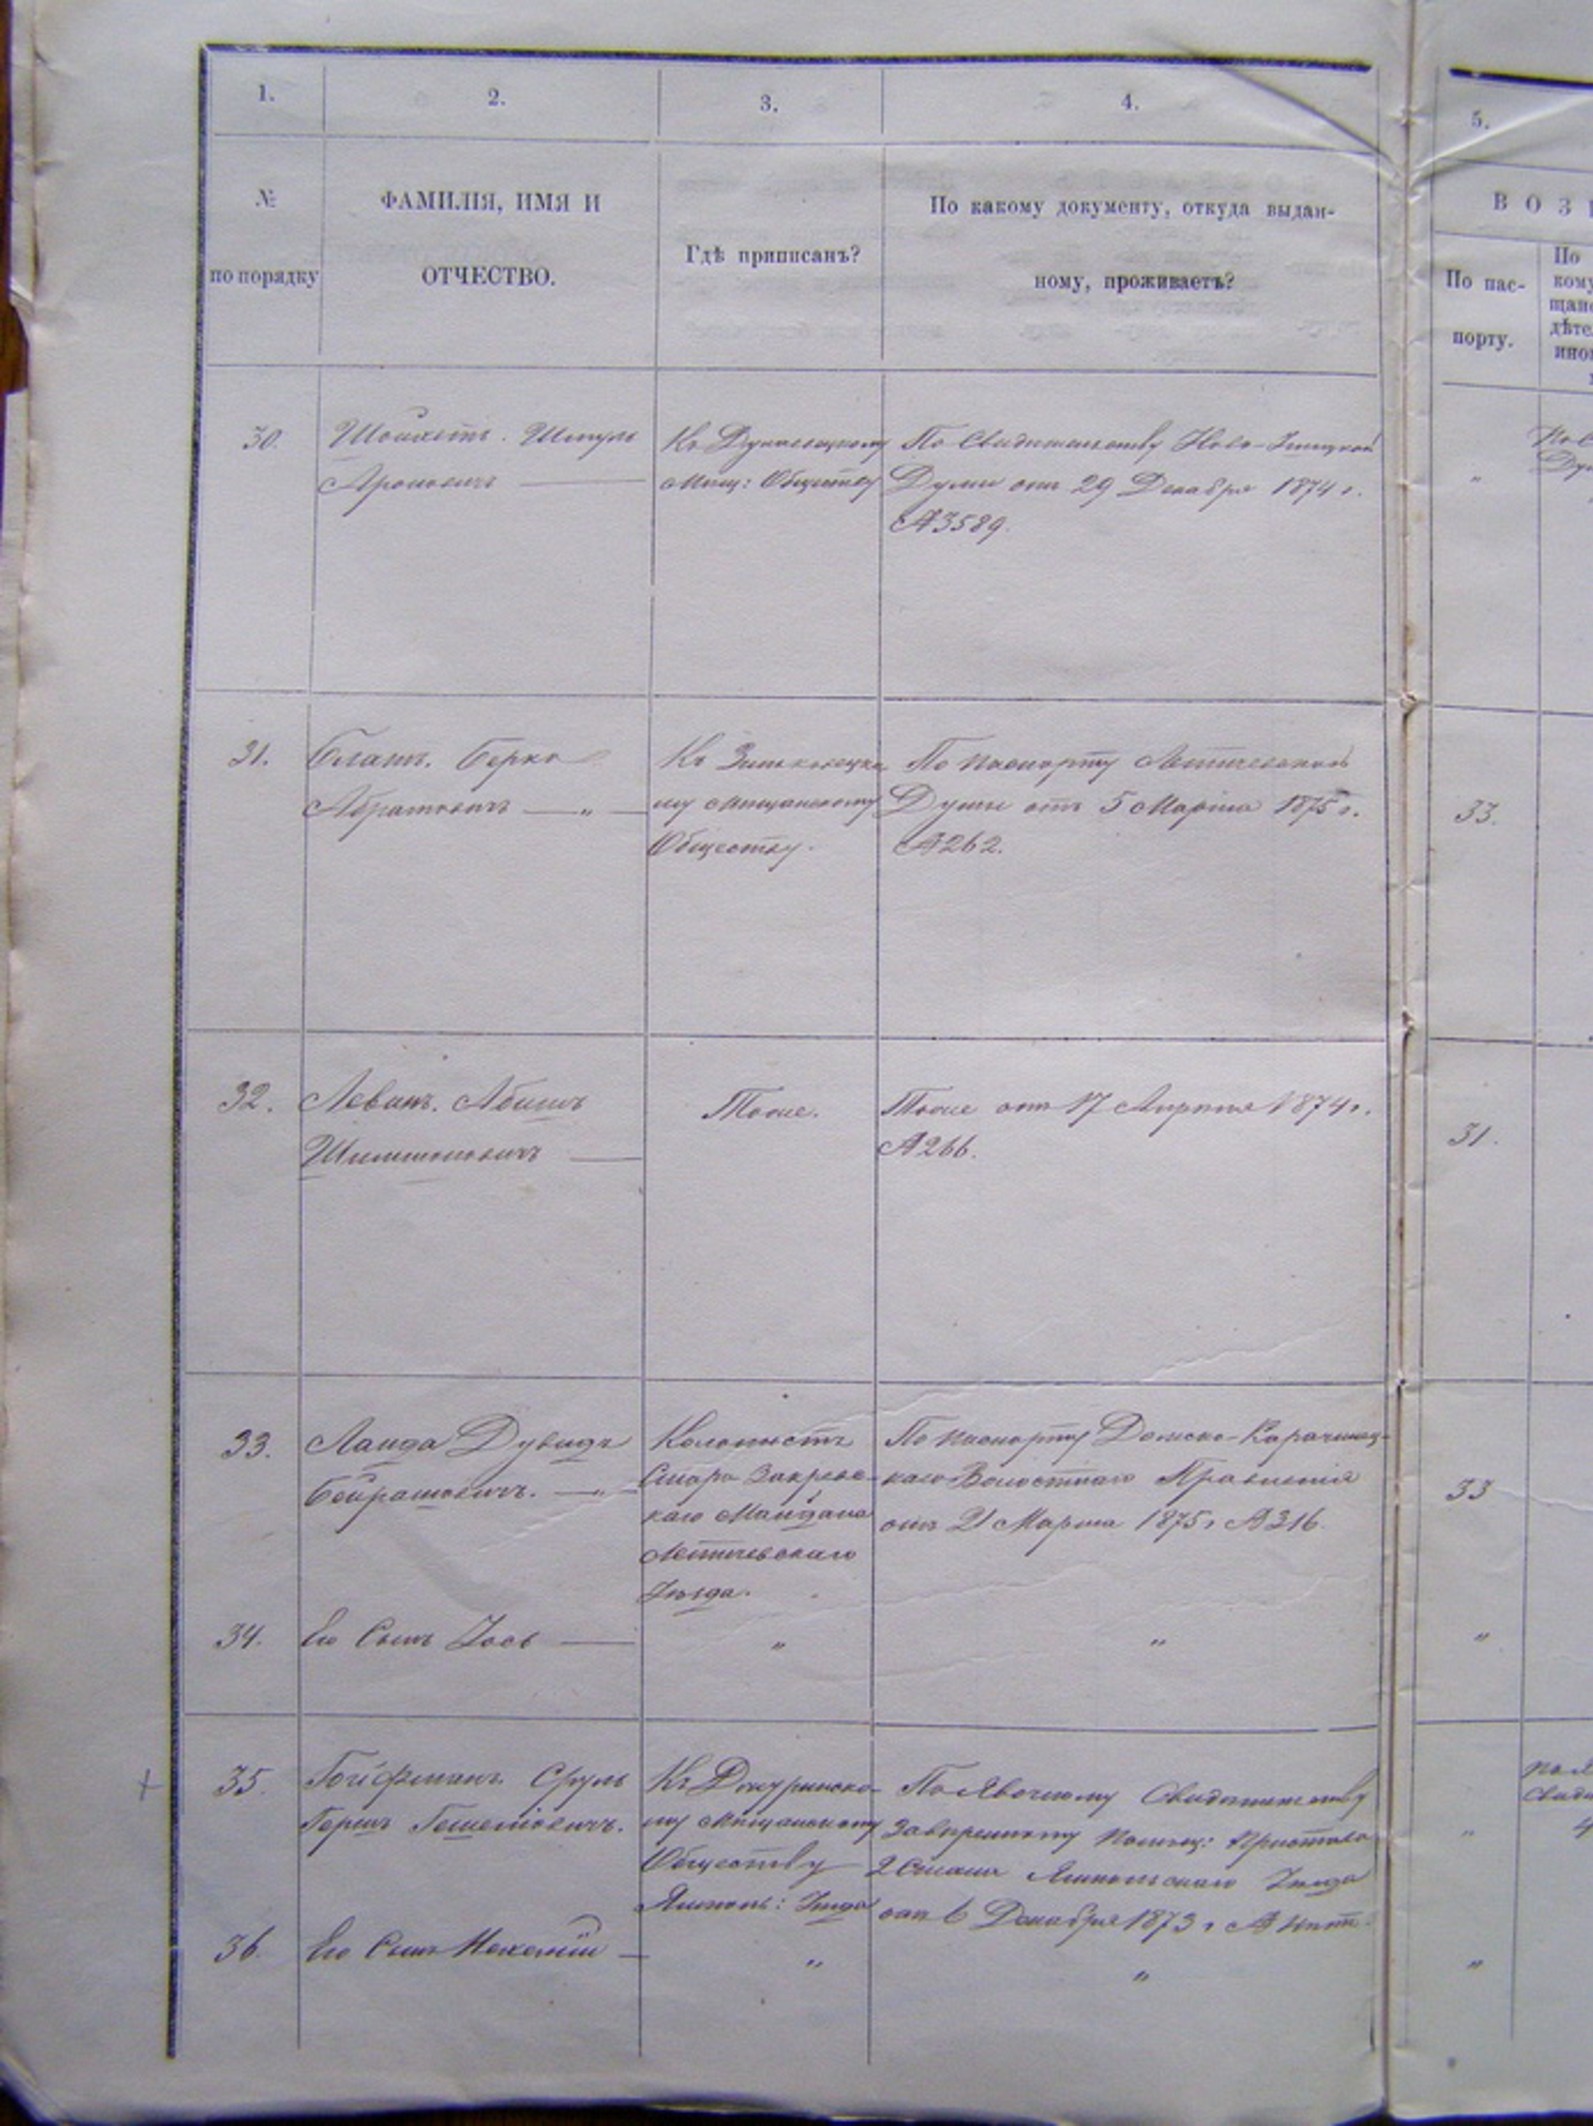 1.
2.
3.
4.
5.
№
по порядку
ФАМИЛІЯ, ИМЯ И
ОТЧЕСТВО.
Гдѣ приписанъ?
По какому документу, откуда выдан-
ному, проживаетъ?
ВОЗ
По пас-
порту.
По
кому
30.
Шойхетъ. Шмуль
Ароновичъ
Къ Дунаевцкому
Мѣщ: Обществу
По Свидетельству Ново-Ушицкой
Думы отъ 29 Декабря 1874 г.
№3589.
„
31.
Блатъ. Берко
Абрамовичъ — „ —
Къ Зинковецко
му Мѣщанскому
Обществу.
По паспорту Летичевской
Думы отъ 5 Марта 1875 г.
№262.
33.
32.
Левинъ. Абишъ
Шимшоновичъ
Тоже.
Тоже отъ 17 Апрѣля 1874 г.
№266.
31.
33.
Ланда Дувидъ
Бейрашовичъ. — „ —
Колонистъ
Старо Закрев-
каго Майдана
Летичевскаго
Уѣзда.
По паспорту
каго Волостнаго Правленія
отъ 21 Марта 1875 г №316.
33
34.
Его Сынъ Іось
„
„
„
35.
Гойфманъ. Сруль
Гершъ
Къ Джуринско-
му Мѣщанскому
Обществу
Ямполь: Уѣзда
По Явочному Свидѣтельству
Завѣренному Полиц: Пристава
2 Стана Ямпольскаго Уѣзда
отъ 6 Декабря 1873 г № нѣтъ.
„
36.
Его Сынъ
„
„
„